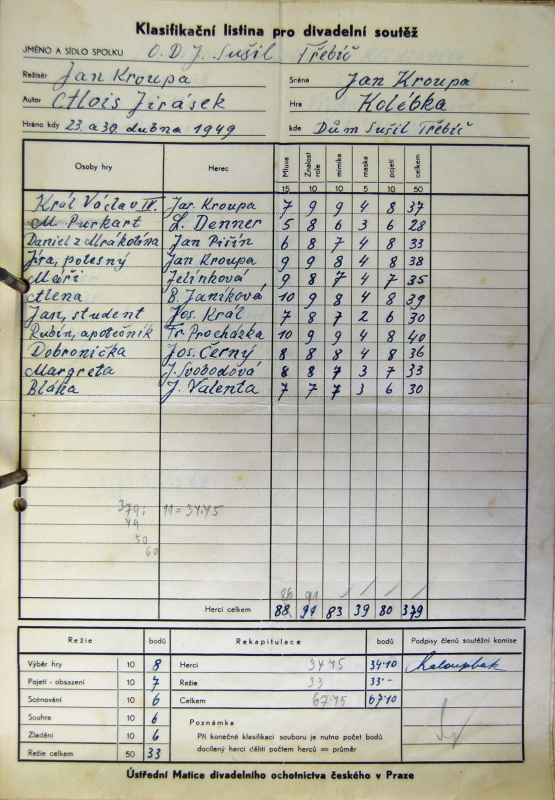 Klasifikační listina pro divadelní soutěž
JMÉNO A SÍDLO SPOLKU O.D.J. Sušil Třebíč
Režisér Jan Kroupa Scéna Jan Kroupa
Autor Alois Jirásek Hra Kolébka
Hráno kdy 23. a 30. dubna 1949 kde Dům Sušil Třebíč
Osoby hry Herec Mluva Znalost role mimika maska pojetí celkem
15 10 10 5 10 50
Král Václav IV. Jar. Kroupa 7 9 9 4 8 37
M. Purkart L. Denner 5 8 6 3 6 28
Daniel z Mrákotína Jan Pišín 6 8 7 4 8 33
Jíra, polesný Jan Kroupa 9 9 8 4 8 38
Maři Jelínková 9 8 7 4 7 35
Alena B. Janíková 10 9 8 4 8 39
Jan, student Jos. Král 7 8 7 2 6 30
Rubín, apotečník Fr. Procházka 10 9 9 4 8 40
Dobronička Jos. Černý 8 8 8 4 8 36
Margreta J. Svobodová 8 8 7 3 7 33
Bláha J. Valenta 7 7 7 3 6 30
379: 11 = 34.45
49
50
60
86 91
Herci celkem 88 91 83 39 80 379
Režie bodů
Výběr hry 10 8
Pojetí - obsazení 10 7
Scénování 10 6
Souhra 10 6
Zladění 10 6
Režie celkem 50 33
Rekapitulace bodů
Herci 34.45 34.10
Režie 33 33.-
Celkem 67.45 67.10
Poznámka
Při konečné klasifikaci souboru je nutno počet bodů
docílený herci děliti počtem herců = průměr
Podpisy členů soutěžní komise
Ústřední Matice divadelního ochotnictva českého v Praze